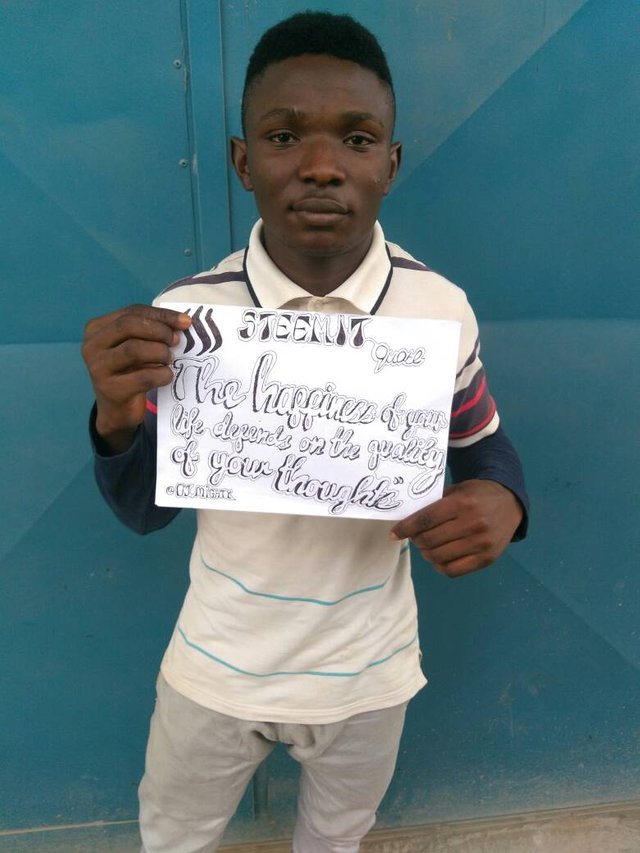 STEEMIT
Quote
The happiness of your
life depends on the quality
of your thoughts"